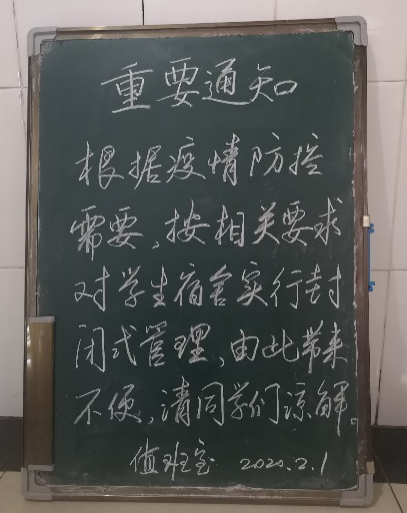 重要通知
根据疫情防控
需要,按相关要求
对学生宿舍实行封
闭式管理,由此带来
不便,请同学们谅解。
值班室 2020.2.1